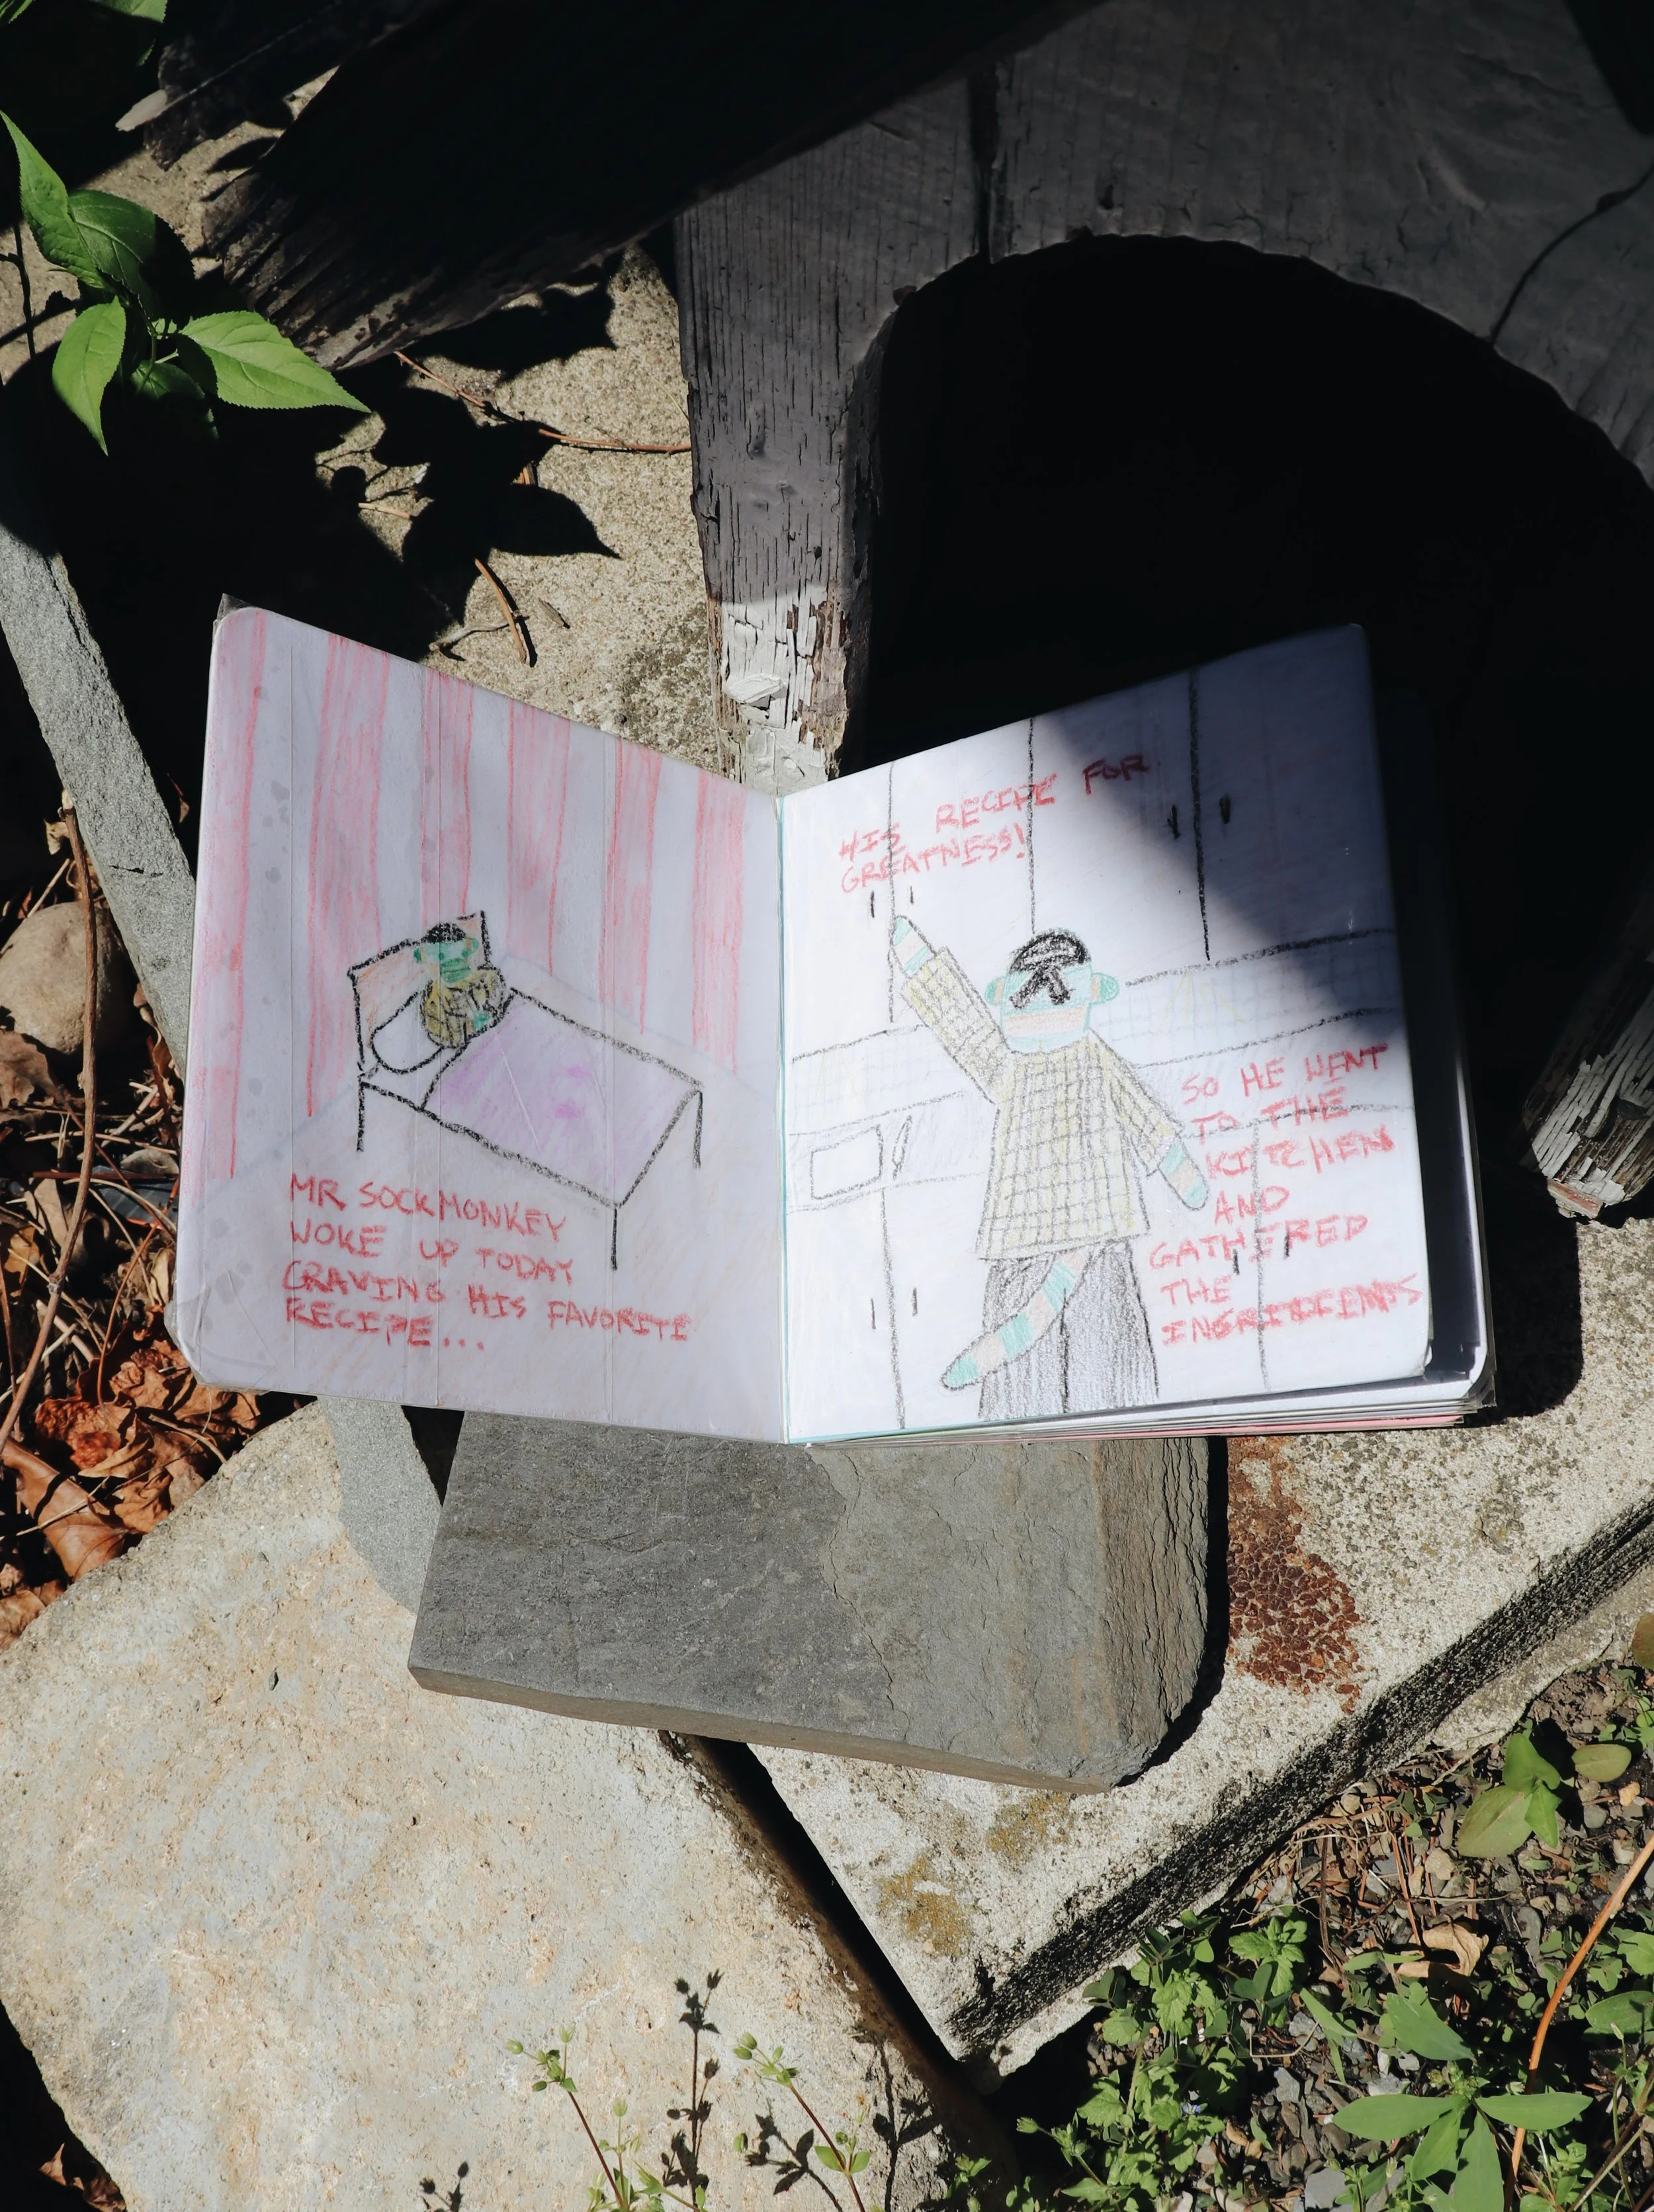 MR SOCKMONKEY
WOKE UP TODAY
CRAVING HIS FAVORITE
RECIPE...
HIS RECIPE FOR
GREATNESS!
SO HE WENT
TO THE
KITCHEN
AND
GATHERED
THE
INGRIDIENTS